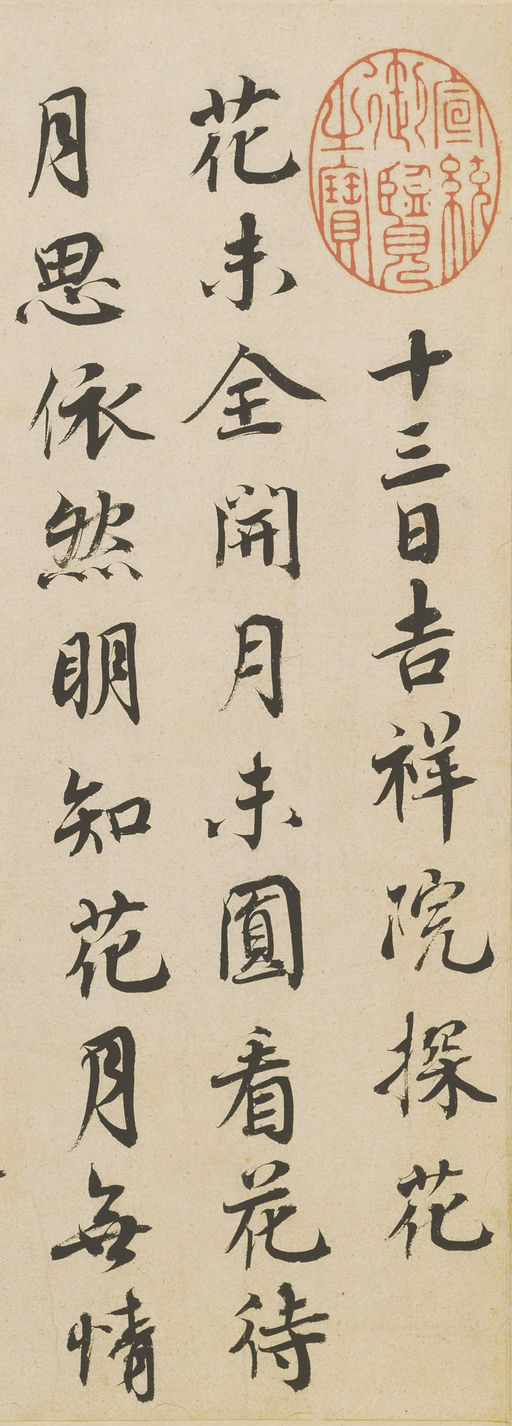 宣統御覽之寶
十三日吉祥院探花
花未全開月未圓看花待
月思依然明知花月無情